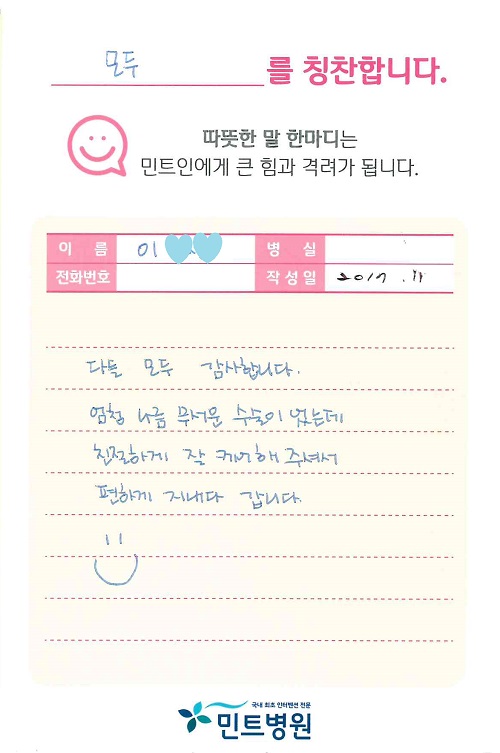 모두 를 칭찬합니다.
따뜻한 말 한마디는
민트인에게 큰 힘과 격려가 됩니다.
이 름 이 병 실
전화번호 작성일 2017 . 11
다들 모두 감사합니다.
엄청 나름 무서운 수술이었는데
친절하게 잘 케어해주셔서
편하게 지내다 갑니다.
국내 최초 인터벤션 전문
민트병원